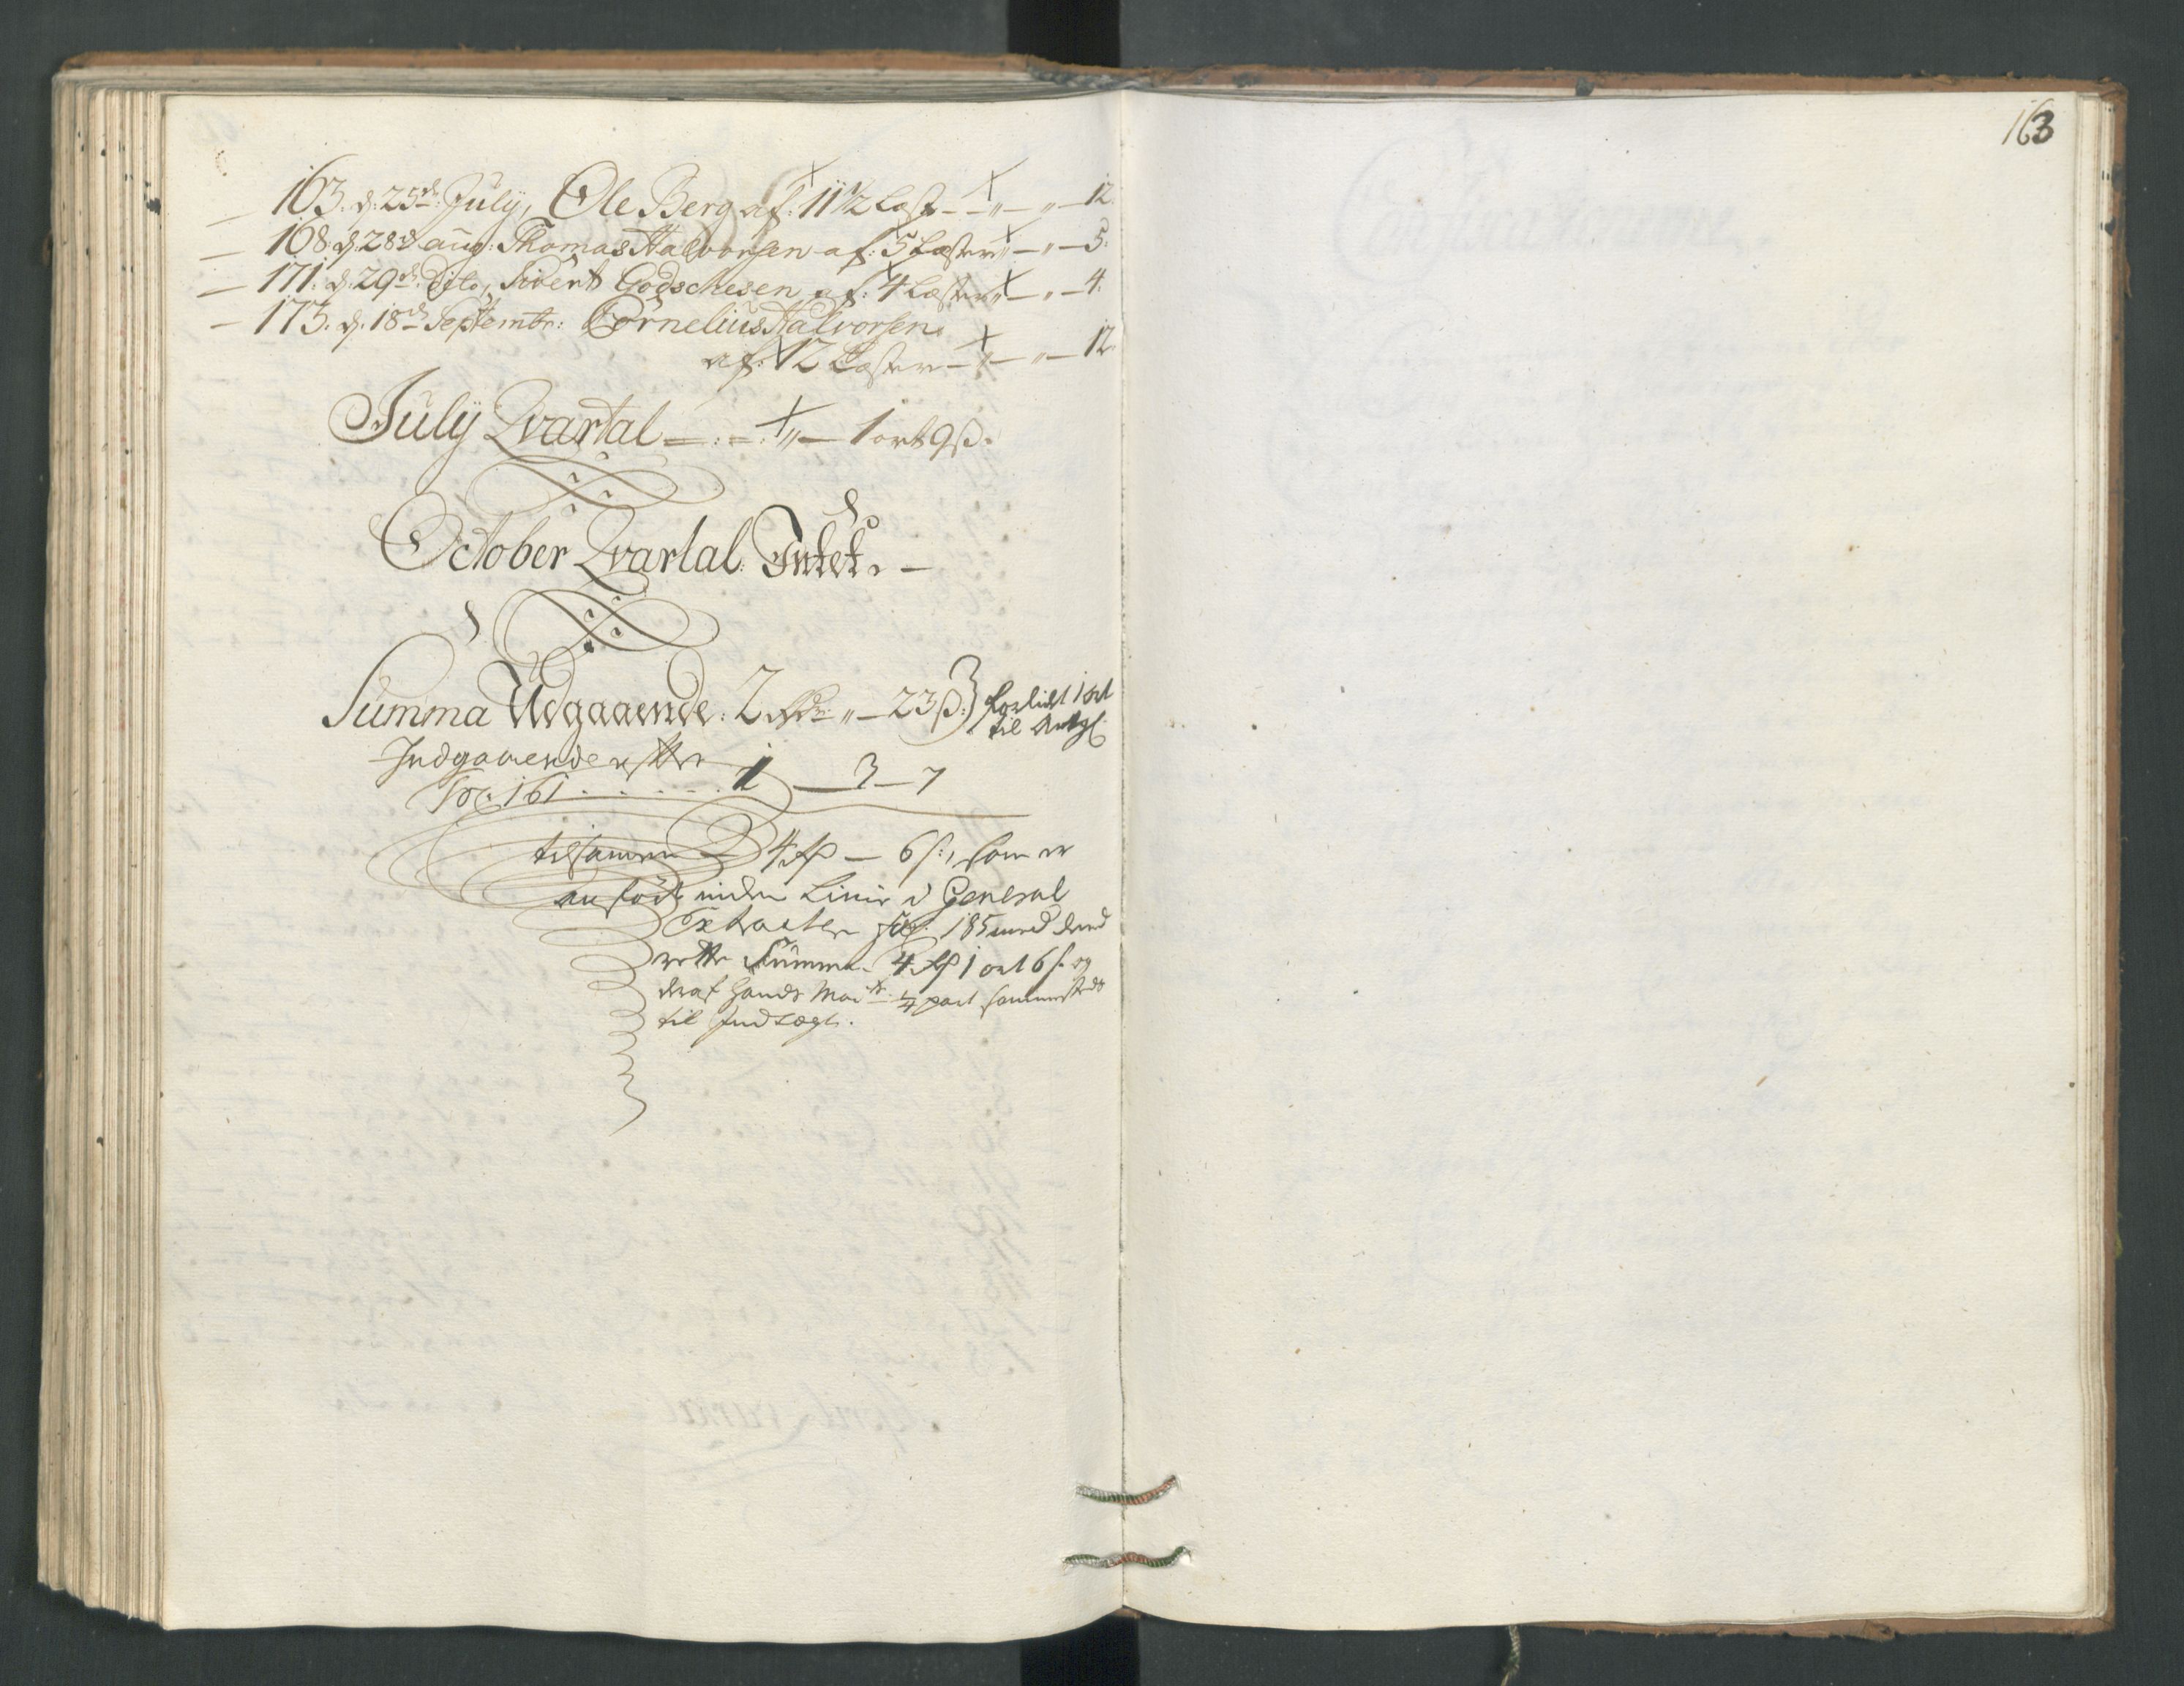 163
— 163. d: 25de July, Ole Berg af: 11 1/2 Læst - - „ — „ — 12.
— 168. d: 28de aug: Thomas Halvorsen af: 5 Læster „ — „ — 5.
— 171. d: 29de Dito, Sivert Godschesen af: 4 Læster „ — „ — 4.
— 175. d. 18de Septembr: Cornelius Halvorsen
af: 12 Læster - „ — „ — 12.
July Qvartal — : — : „ — 1 ort 9 ß.
October Qvartal Intet. —
Summa Udgaaende: 2 Rdr „ — 23 ß:
til Antgl
Indgaaende efter
fol. 161 . . . . . . 1 — 3 — 7
tilsamen — 4 Rd — 6 s:, som er
anført inden Linie i General
Extracten fol: 185 med dend
rette Summa 4 Rd 1 ort 6 s. og
deraf hands Mai ts 1/4 part sammesteds
til Indtægt.